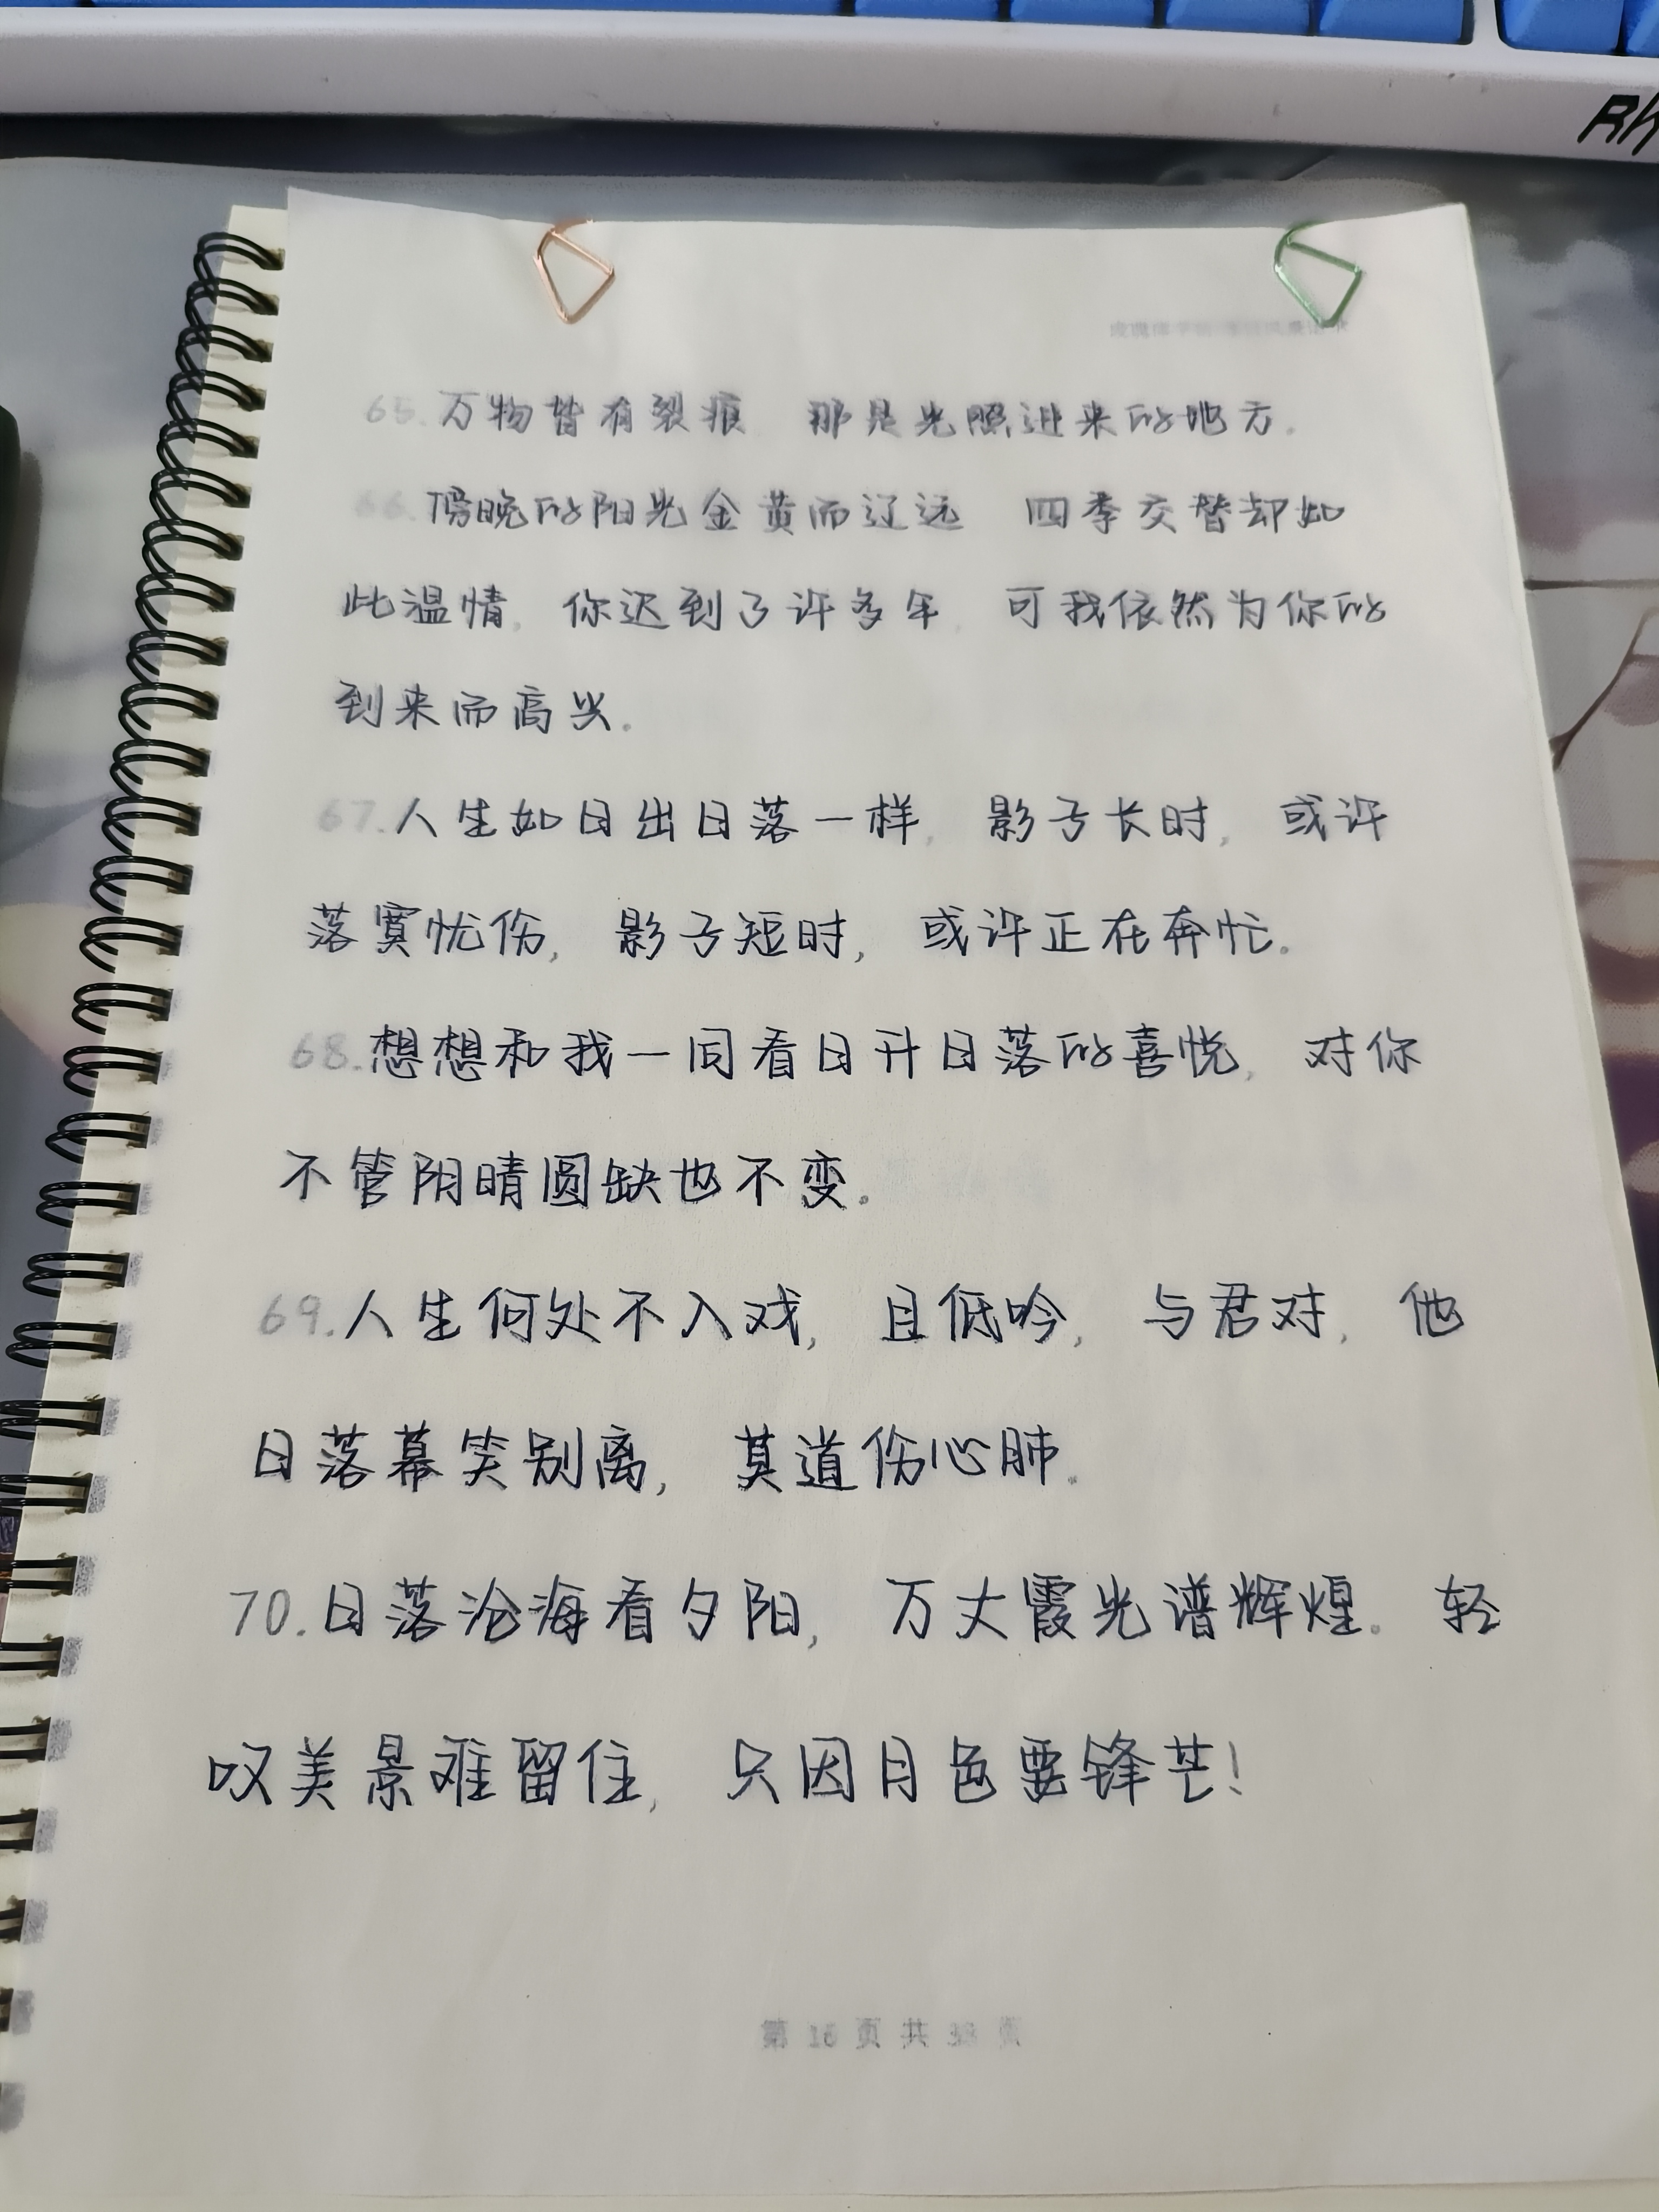 RK
65.万物皆有裂痕 那是光照进来的地方.
66.傍晚的阳光金黄而辽远 四季交替却如
此温情. 你迟到了许多年, 可我依然为你的
到来而高兴.
67.人生如日出日落一样, 影子长时, 或许
落寞忧伤, 影子短时, 或许正在奔忙。
68.想想和我一同看日升日落的喜悦, 对你
不管阴晴圆缺也不变。
69.人生何处不入戏, 且低吟, 与君对, 他
日落幕笑别离, 莫道伤心肺。
70.日落沧海看夕阳, 万丈霞光谱辉煌。轻
叹美景难留住, 只因月色要锋芒!
第 16 页 共 38 页